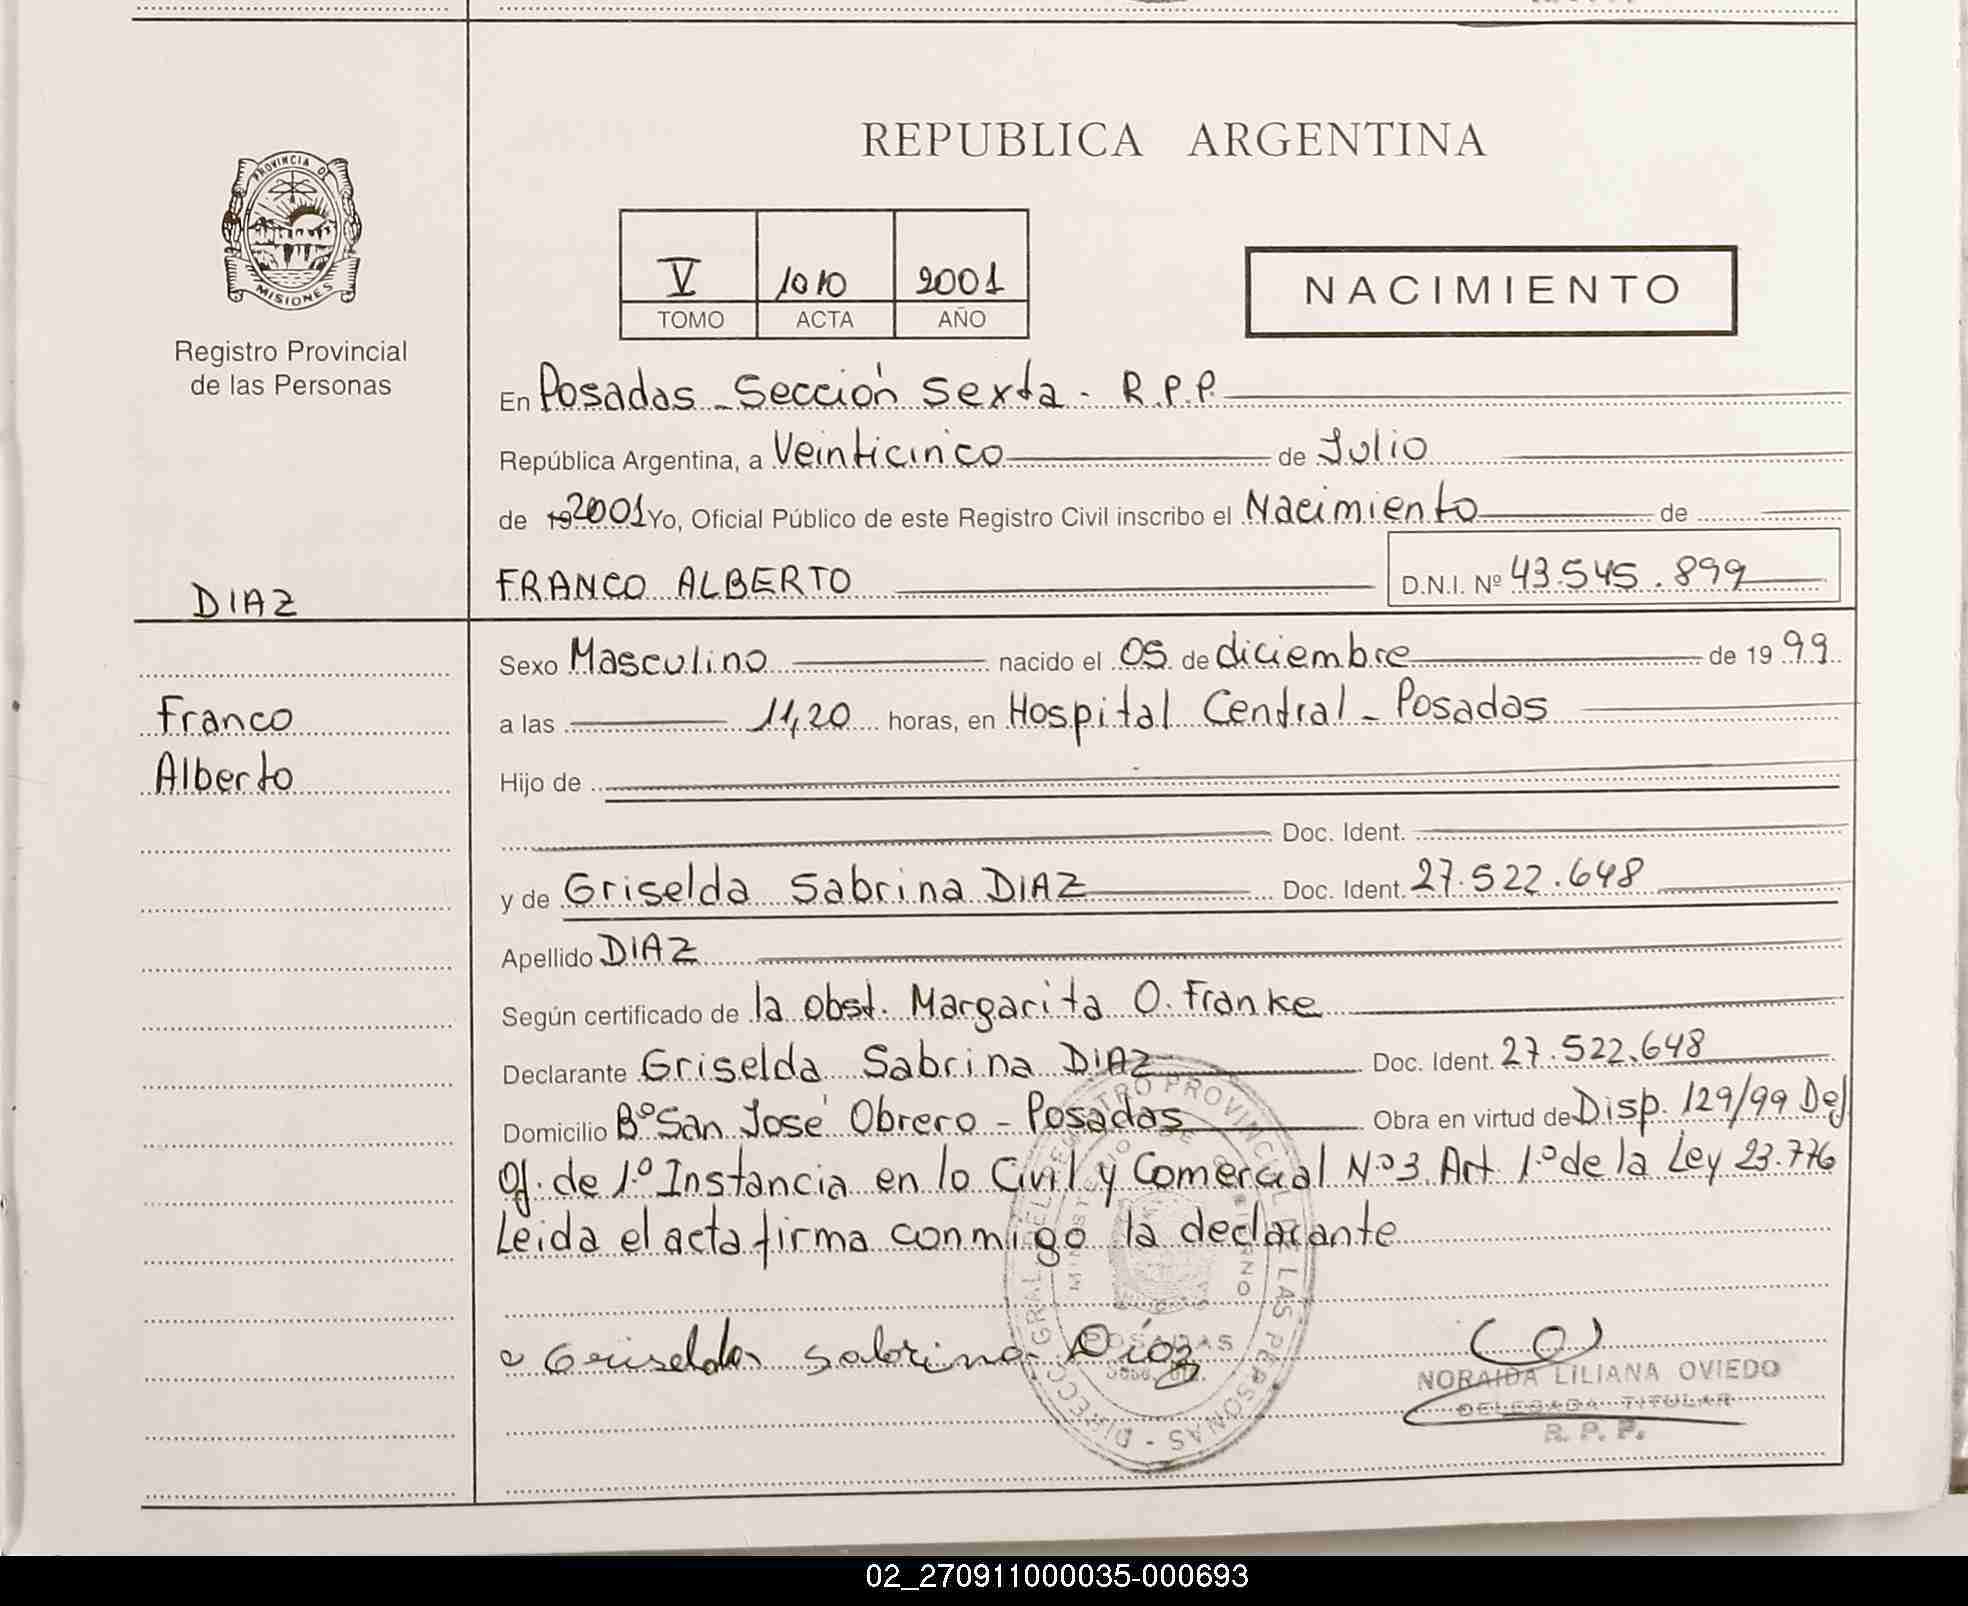 REPUBLICA ARGENTINA
PROVINCIA DE
MISIONES
Registro Provincial
de las Personas
V 1010 2001
TOMO ACTA AÑO
NACIMIENTO
En Posadas - Sección Sexta - R.P.P.
República Argentina, a Veinticinco de Julio
de 19 2001 Yo, Oficial Público de este Registro Civil inscribo el Nacimiento de
DIAZ
FRANCO ALBERTO D.N.I. Nº 43.545.899
Sexo Masculino nacido el 05 de diciembre de 1999
Franco
a las 11,20 horas, en Hospital Central - Posadas
Alberto
Hijo de
Doc. Ident.
y de Griselda Sabrina DIAZ Doc. Ident. 27.522.648
Apellido DIAZ
Según certificado de la obst. Margarita O. Franke
Declarante Griselda Sabrina DIAZ Doc. Ident. 27.522.648
Domicilio Bº San José Obrero - Posadas Obra en virtud de Disp. 129/99 Def
Of. de 1.º Instancia en lo Civil y Comercial N.º 3. Art. 1.º de la Ley 23.776
Leida el acta firma conmigo la declarante
Griselda Sabrina Díaz
DIRECC. GRAL. DEL REGISTRO PROVINCIAL DE LAS PERSONAS
MINISTERIO DE GOBIERNO
POSADAS
NORAIDA LILIANA OVIEDO
DELEGADA TITULAR
R. P. P.
02_270911000035-000693